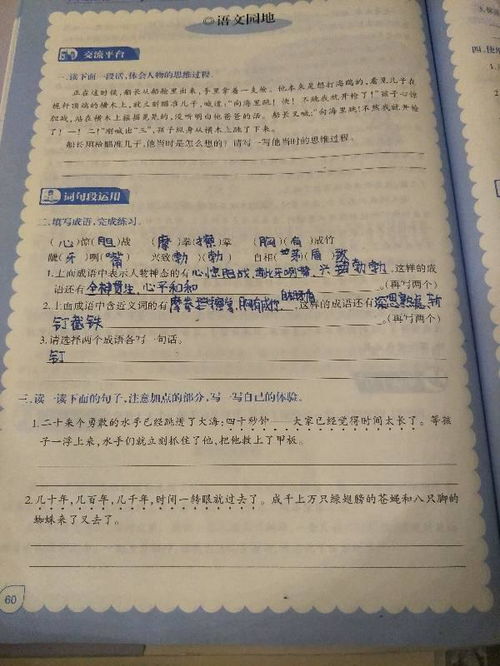 ◎语文园地
交流平台
一、读下面一段话,体会人物的思维过程。
正在这时候,船长从船舱里出来,手里拿着一支枪。他本来是想打海鸥的,看见儿子在
桅杆顶端的横木上,就立刻瞄准儿子,喊道:“向海里跳!快!不跳我就开枪了!”孩子心惊
胆战,站在横木上摇摇晃晃的,没听明白他爸爸的话。船长又喊:“向海里跳!不然我就开枪
了!一!二!”刚喊出“三”,孩子纵身从横木上跳了下来。
船长用枪瞄准儿子,他当时是怎么想的?请写一写他当时的思维过程。
词句段运用
二、填写成语,完成练习。
(心)惊(胆)战 (摩)拳(擦)掌 (胸)(有)成竹
龇(牙)咧(嘴) 兴致(勃)(勃) 自相(矛)(盾)
1.上面成语中表示人物神态的有心惊胆战 龇牙咧嘴 兴致勃勃,这样的成
语还有 心平和和 。(再写两个)
2.上面成语中含近义词的有摩拳擦掌,胸有成竹 ,这样的成语还有
钉截铁 。(再写两个)
3.请选择两个成语各写一句话。
钉
三、读一读下面的句子,注意加点的部分,写一写自己的体验。
1.二十来个勇敢的水手已经跳进了大海:四十秒钟——大家已经觉得时间太长了。等孩
子一浮上来,水手们就立刻抓住了他,把他救上了甲板。
2.几十年,几百年,几千年,时间一转眼就过去了。成千上万只绿翅膀的苍蝇和八只脚的
蜘蛛来了又去了。
60